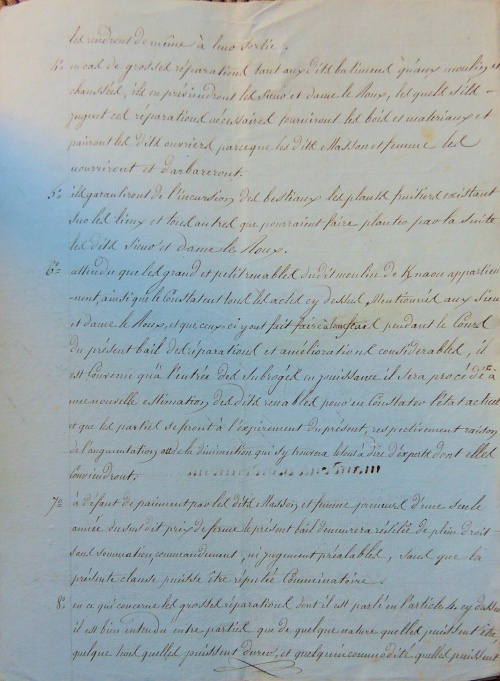 les rendront de même à leur sortie.
4º en cas de grosses réparations tant aux dits batiments qu'aux moulin et
chaussée, ils en préviendront les Sieur et dame le Roux, les quels s'ils
jugent ces réparations nécessaires fourniront les bois et materiaux et
pairont les dits ouvriers parceque les dits Masson et femme les
nourriront et darbareront.
5º ils garantiront de l'incursion des bestiaux les plants fruitiers existant
sur les lieux et tous autres que pourraient faire planter par la suite
les dits Sieur et dame le Roux.
6º attendu que les grand et petit renables du dit moulin de Knaou appartien
nent, ainsi que le Constatent tous les actes cy dessus mentionnés aux Sieur
et dame le Roux, et que ceux-ci y ont fait faire à leurs frais pendant le Cours
du présent bail des réparations et améliorations considérables, il
est convenu qu'à l'entrée des subrogés en jouissance il sera procédé à
une nouvelle estimation des dits renables pour en Constater l'état actuel
et que les parties se feront à l'expirement du présent, respectivement raison
de l'augmentation ou de la diminution qui s'y trouvera lors à dire d'experts dont elles
Conviendront.
7º à défaut de paiment par les dits Masson et femme preneurs d'une seule
année du sus dit prix de ferme le présent bail demeurera résilié de plein droit
sans sommation, commandement, ni jugement préalables, sans que la
présente clause puisse être réputée Comminatoire.
8º en ce qui concerne les grosses réparations dont il est parlé en l'article 4 cy dessus
il est bien entendu entre parties que de quelque nature quelles puissent être,
quelque tems quelles puissent durer, et quelqu'incommodité quelles puissent